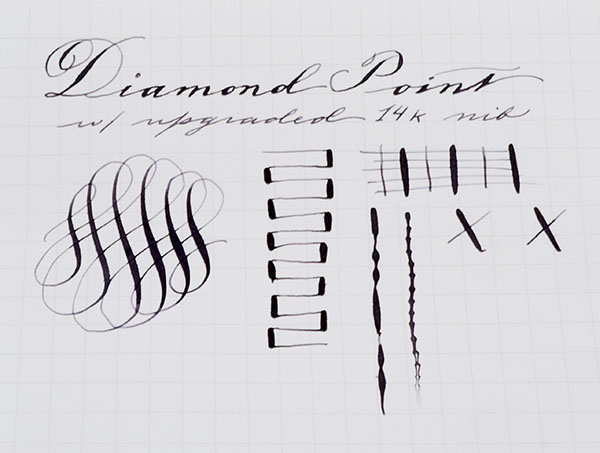 Diamond Point
w/ upgraded 14k nib